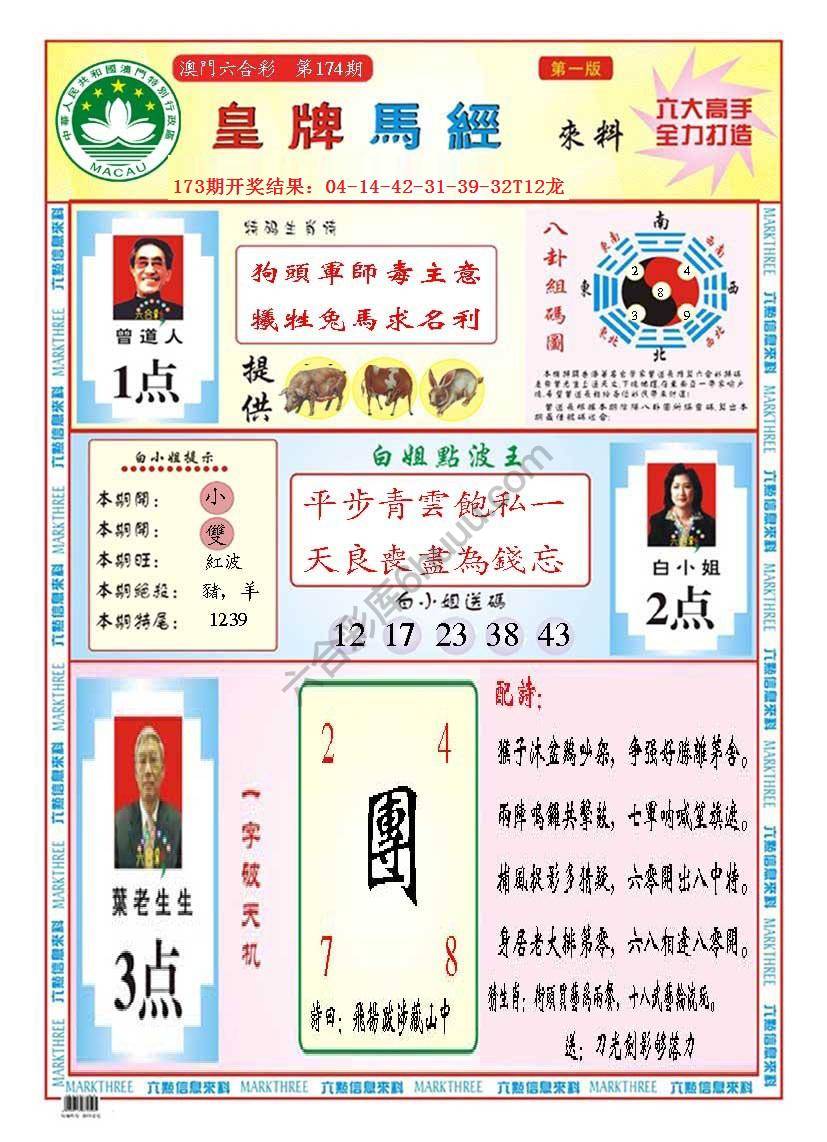 澳門六合彩 第174期
第一版
中華人民共和國澳門特別行政區
MACAU
皇牌馬經
來料
六大高手
全力打造
173期开奖结果：04-14-42-31-39-32T12龙
特码生肖诗
狗頭軍師毒主意
犧牲兔馬求名利
六合彩
曾道人
1点
提供
八卦組碼圖
南
東南
西南
2
4
東
8
西
3
9
東北
西北
北
白小姐提示
本期開：小
本期開：雙
本期旺：紅波
本期絕殺：豬，羊
本期特尾：1239
白姐點波王
平步青雲飽私一
天良喪盡為錢忘
白小姐送碼
12 17 23 38 43
白小姐
2点
六合彩
葉老生生
3点
一字破天机
2
4
團
7
8
詩曰：飛揚跋涉藏山中
配詩：
猴子沐盆鷄吵架，争强好勝離茅舍。
兩陣鳴鑼共擊鼓，七軍吶喊笙旗遮。
捕風捉影多猜疑，六零開出八中特。
身居老大排第零，六八相逢八零開。
猜生肖：街頭買藝爲兩餐，十八武藝輪流玩。
送：刀光劍影够落力
MARKTHREE 六點信息來料 MARKTHREE 六點信息來料 MARKTHREE 六點信息來料 MARKTHREE 六點信息來料
六合彩库6kuuu.com